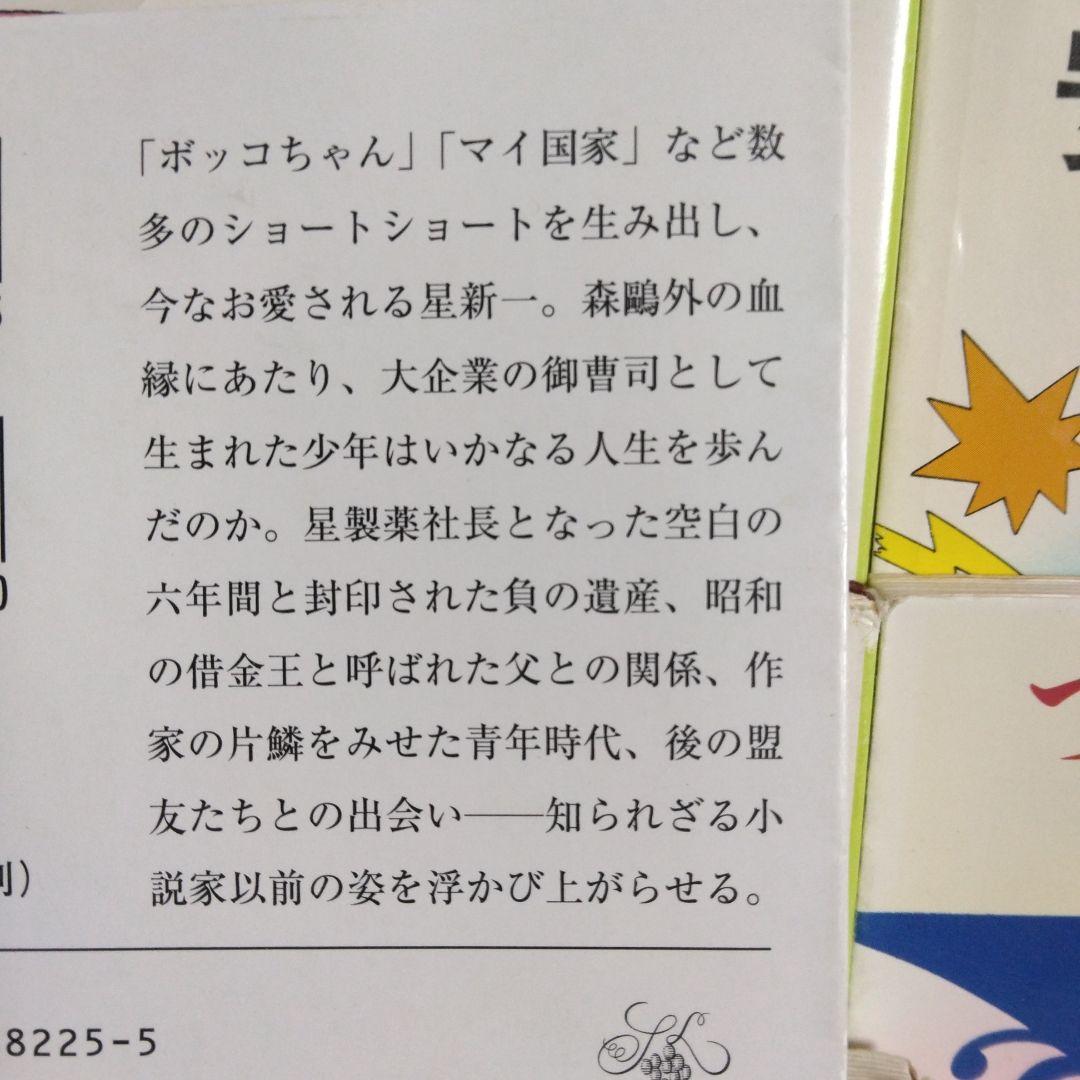 「ボッコちゃん」「マイ国家」など数
多のショートショートを生み出し、
今なお愛される星新一。森鷗外の血
縁にあたり、大企業の御曹司として
生まれた少年はいかなる人生を歩ん
だのか。星製薬社長となった空白の
六年間と封印された負の遺産、昭和
の借金王と呼ばれた父との関係、作
家の片鱗をみせた青年時代、後の盟
友たちとの出会い――知られざる小
説家以前の姿を浮かび上がらせる。
8225-5